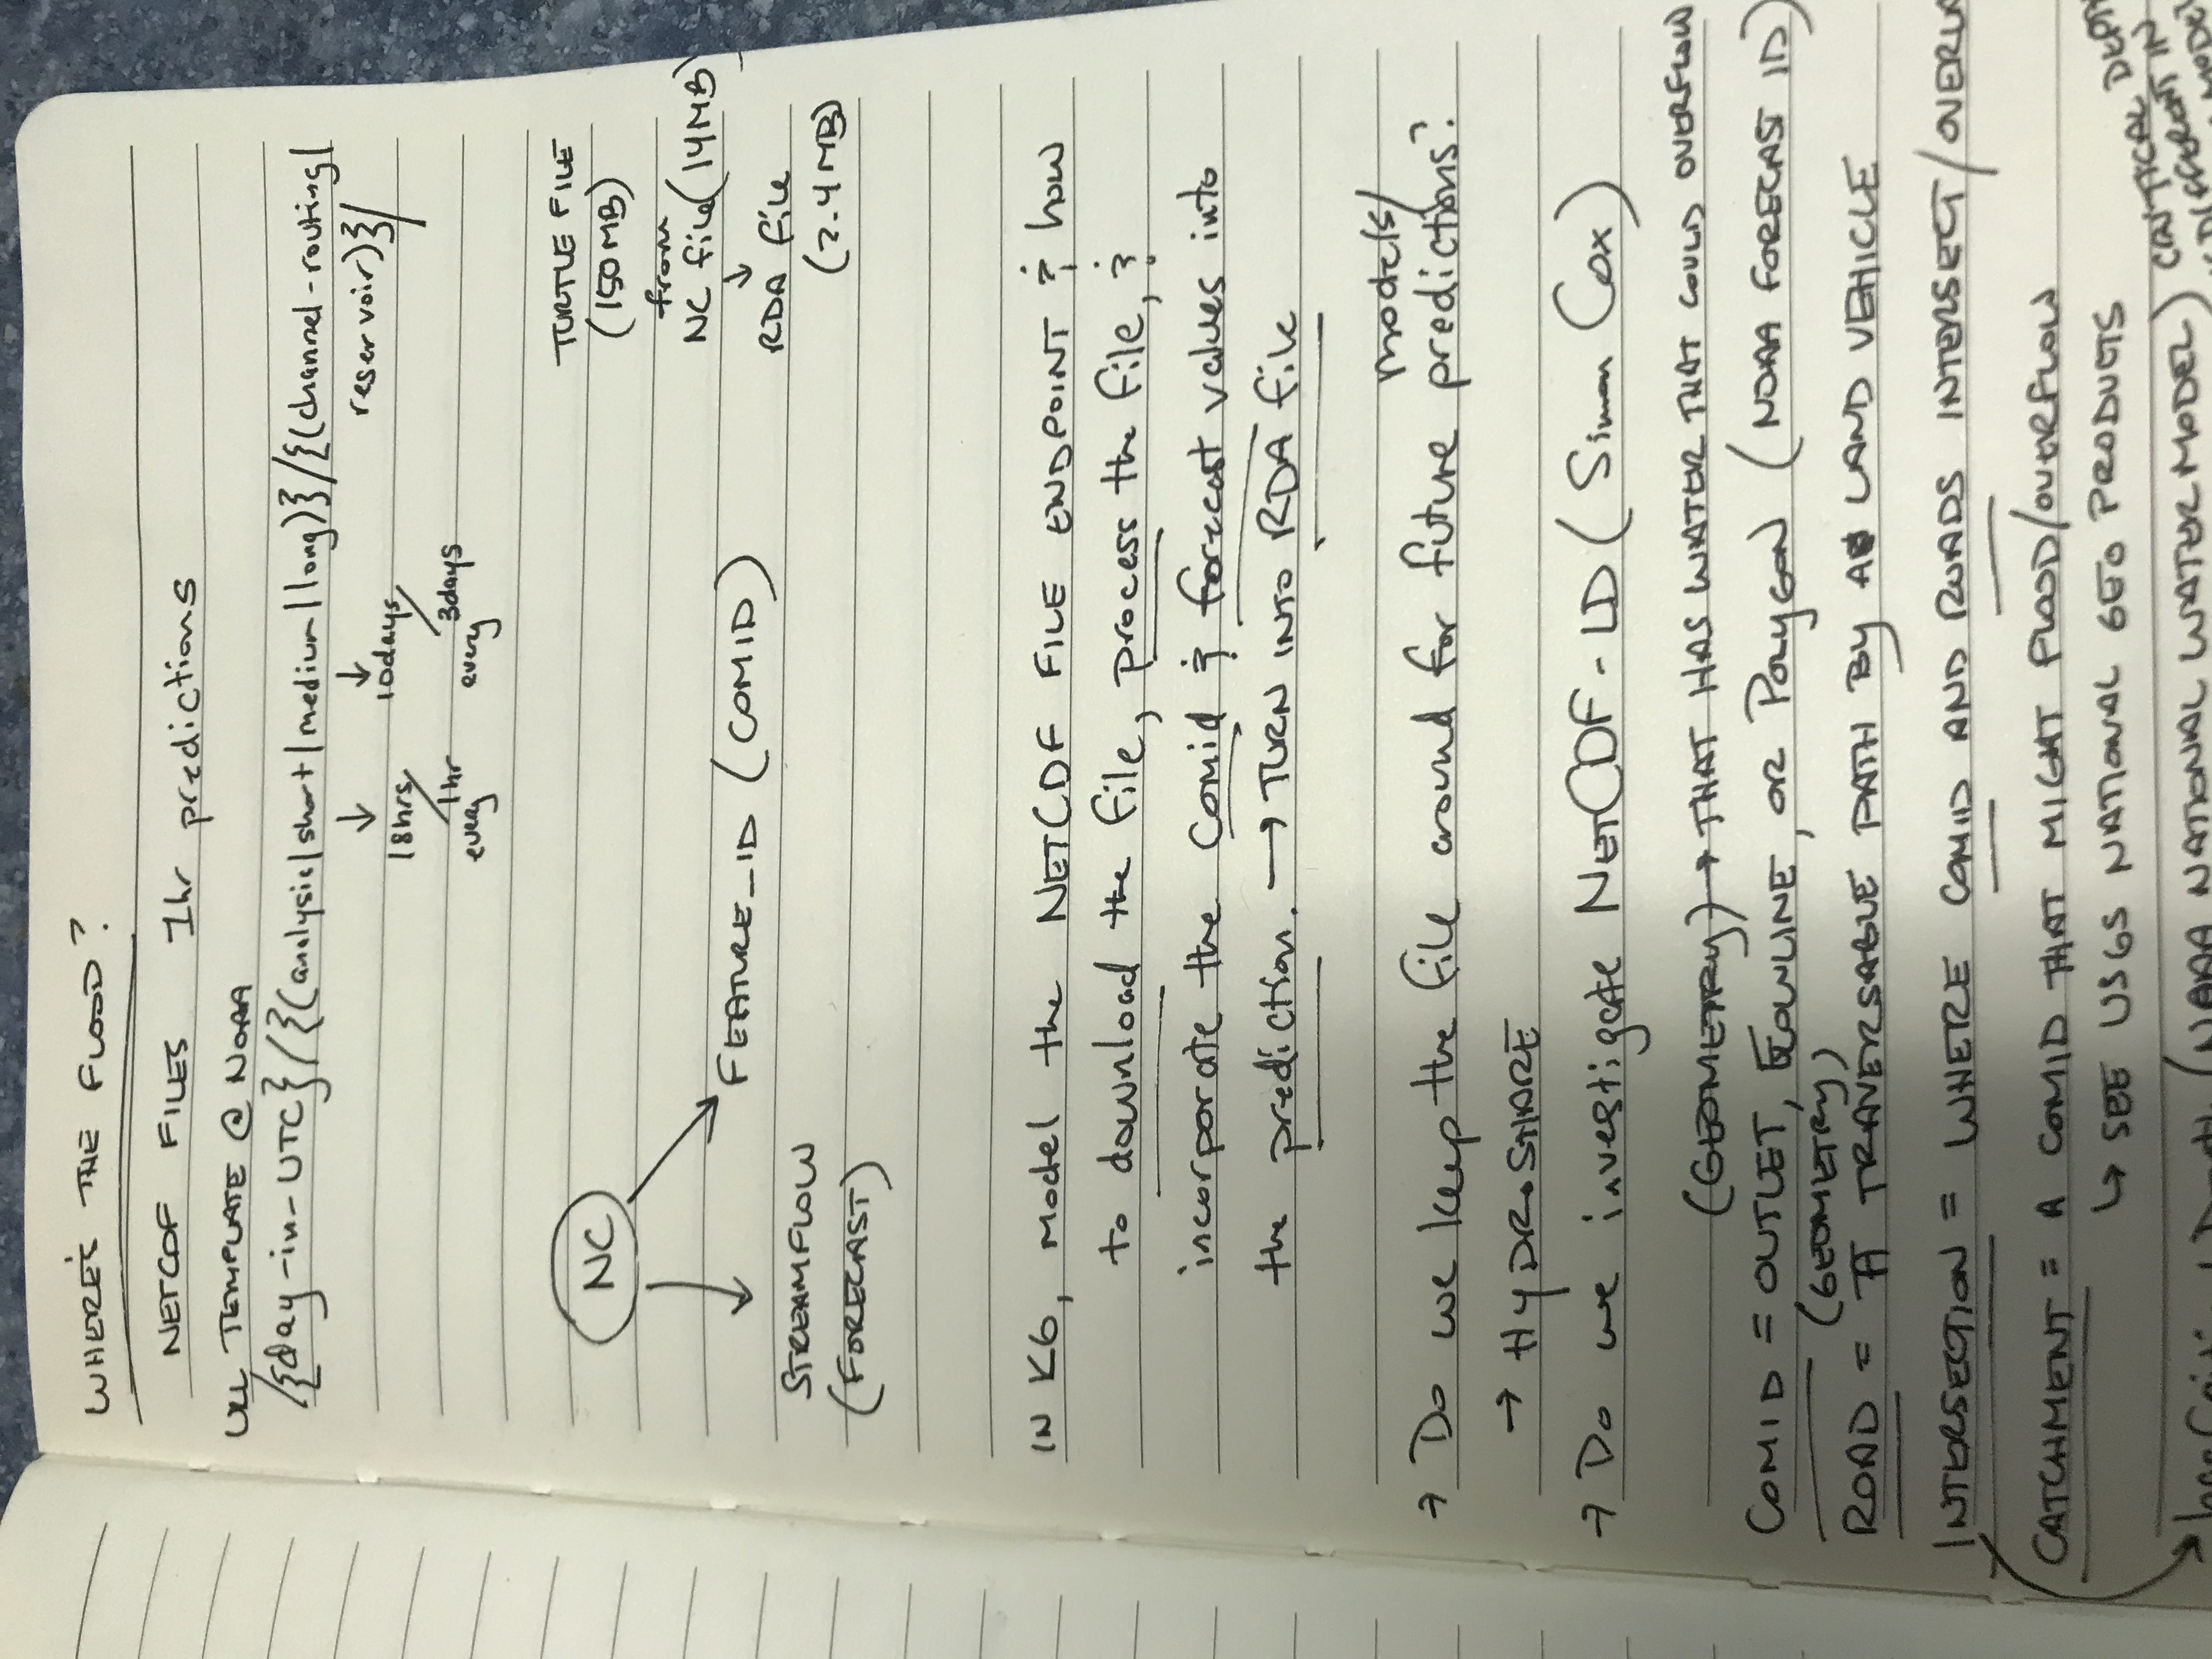 WHERE'S THE FLOOD?
NETCDF FILES 1hr predictions
URL TEMPLATE @ NOAA
/{day-in-UTC}/{(analysis|short|medium|long)}/{(channel-routing|
reservoir)}/
18hrs/ 10days/
every 1hr every 3days
NC
TURTLE FILE
(150MB)
from
NC file (14MB)
RDA file
(2.4MB)
FEATURE_ID (COMID)
STREAMFLOW
(FORECAST)
IN KG, model the NETCDF FILE ENDPOINT & how
to download the file, process the file, &
incorporate the Comid & forecast values into
the prediction. → TURN INTO RDA file
models/
→ Do we keep the file around for future predictions?
→ HYDROSHARE
→ Do we investigate NETCDF-LD (Simon Cox)
(GEOMETRY) → THAT HAS WATER THAT COULD OVERFLOW
COMID = OUTLET, FLOWLINE, OR POLYGON (NOAA FORECAST ID)
(GEOMETRY)
ROAD = A TRAVERSABLE PATH BY A LAND VEHICLE
INTERSECTION = WHERE COMID AND ROADS INTERSECT/OVERLA
CATCHMENT = A COMID THAT MIGHT FLOOD/OVERFLOW
↳ SEE USGS NATIONAL GEO PRODUCTS
(NOAA NATIONAL WATER MODEL) CRITICAL DEPTH
DIFFERENT IN